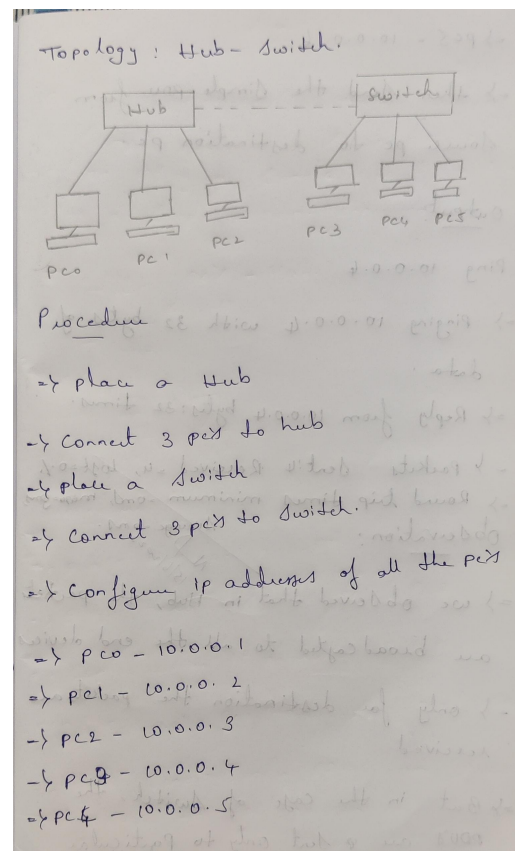 Topology : Hub - Switch.
Hub
Switch
PC0
PC1
PC2
PC3
PC4
PC5
Procedure
=> place a Hub
=> Connect 3 pc's to hub
=> place a Switch
=> Connect 3 pc's to Switch.
=> Configure IP addresses of all the pc's
=> PC0 - 10.0.0.1
=> PC1 - 10.0.0.2
=> PC2 - 10.0.0.3
=> PC3 - 10.0.0.4
=> PC4 - 10.0.0.5